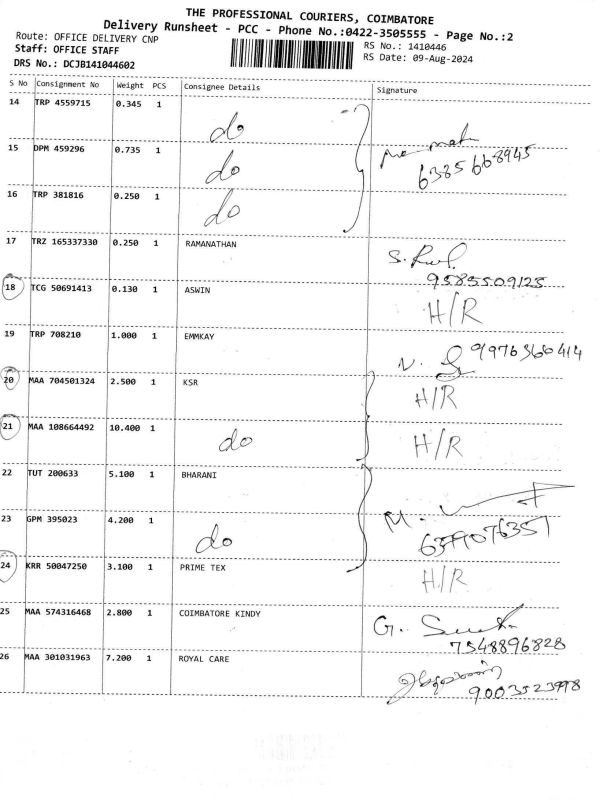 THE PROFESSIONAL COURIERS, COIMBATORE
Delivery Runsheet - PCC - Phone No.:0422-3505555 - Page No.:2
Route: OFFICE DELIVERY CNP
RS No.: 1410446
Staff: OFFICE STAFF
RS Date: 09-Aug-2024
DRS No.: DCJB141044602
S No Consignment No Weight PCS Consignee Details Signature
14 TRP 4559715 0.345 1 do
15 DPM 459296 0.735 1 do 6385668945
16 TRP 381816 0.250 1 do
17 TRZ 165337330 0.250 1 RAMANATHAN S. 9585509125
18 TCG 50691413 0.130 1 ASWIN H/R
19 TRP 708210 1.000 1 EMMKAY N. 9976366414
20 MAA 704501324 2.500 1 KSR H/R
21 MAA 108664492 10.400 1 do H/R
22 TUT 200633 5.100 1 BHARANI
23 GPM 395023 4.200 1 do M.
24 KRR 50047250 3.100 1 PRIME TEX H/R
25 MAA 574316468 2.800 1 COIMBATORE KINDY G. 7548896828
26 MAA 301031963 7.200 1 ROYAL CARE